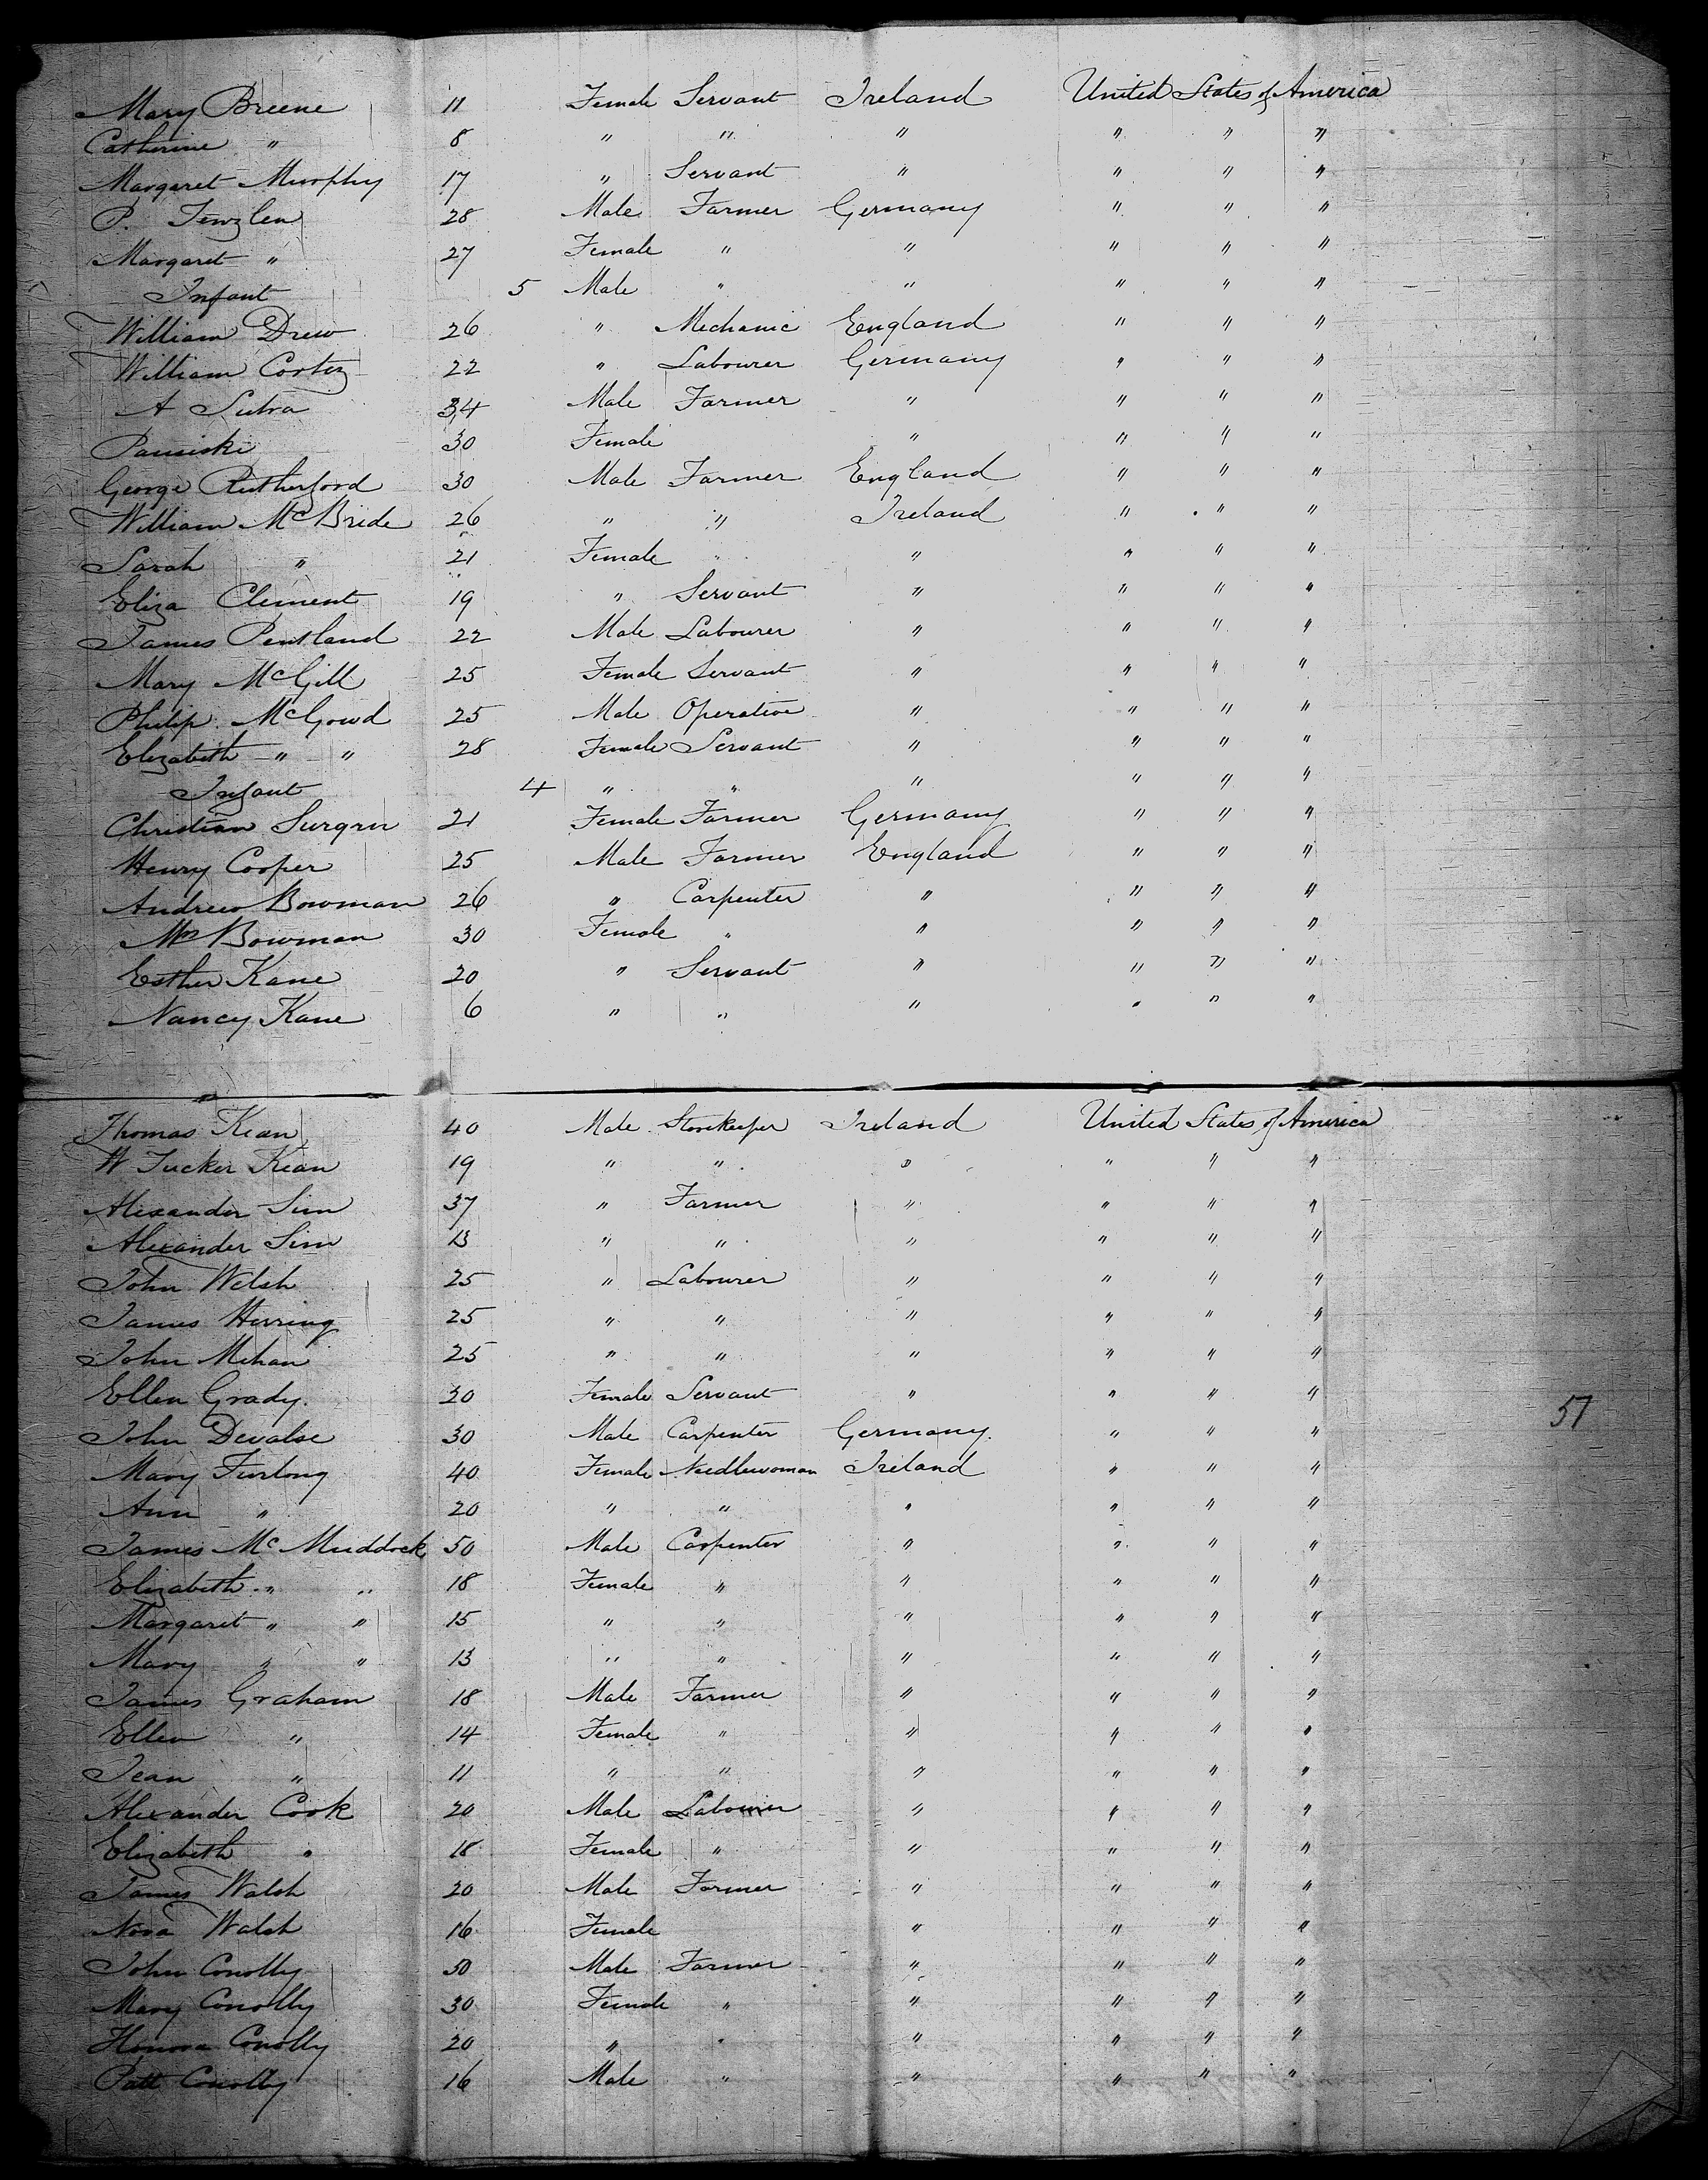 Mary Breene 11 Female Servant Ireland United States of America
Catherine " 8 " " " " " "
Margaret Murphy 17 " Servant " " " "
P. 28 Male Farmer Germany " " "
Margaret " 27 Female " " " " "
Infant 5 Male " " " " "
William Drew 26 " Mechanic England " " "
William Cortez 22 " Labourer Germany " " "
A Sutra 34 Male Farmer " " " "
30 Female " " " "
George Rutherford 30 Male Farmer England " " "
William McBride 26 " " Ireland " " "
Sarah " 21 Female " " " " "
Eliza Clement 19 " Servant " " " "
James Pentland 22 Male Labourer " " " "
Mary McGill 25 Female Servant " " " "
Philip McGowd 25 Male Operative " " " "
Elizabeth " " 28 Female Servant " " " "
Infant 4 " " " " " "
Christian 21 Female Farmer Germany " " "
Henry Cooper 25 Male Farmer England " " "
Andrew Bowman 26 " Carpenter " " " "
Mrs Bowman 30 Female " " " " "
Esther Kane 20 " Servant " " " "
Nancy Kane 6 " " " " " "
Thomas Kean 40 Male Storekeeper Ireland United States of America
W Tucker Kean 19 " " " " " "
Alexander Sim 37 " Farmer " " " "
Alexander Sim 13 " " " " " "
John Welsh 25 " Labourer " " " "
James Herring 25 " " " " " "
John Mehan 25 " " " " " "
Ellen Grady. 20 Female Servant " " " "
John Devalse 30 Male Carpenter Germany. " " "
Mary Furlong 40 Female Needlewoman Ireland " " "
Ann " 20 " " " " " "
James Mc Muddock 50 Male Carpenter " " " "
Elizabeth " " 18 Female " " " " "
Margaret " " 15 " " " " " "
Mary " " 13 " " " " " "
James Graham 18 Male Farmer " " " "
Ellen " 14 Female " " " " "
Jean " 11 " " " " " "
Alexander Cook 20 Male Labourer " " " "
Elizabeth " 18 Female " " " " "
James Walsh 20 Male Farmer " " " "
Nora Walsh 16 Female " " " "
John Conolly 50 Male Farmer " " " "
Mary Conolly 30 Female " " " " "
Honora Conolly 20 " " " " " "
Patt Conolly 16 Male " " " " "
57